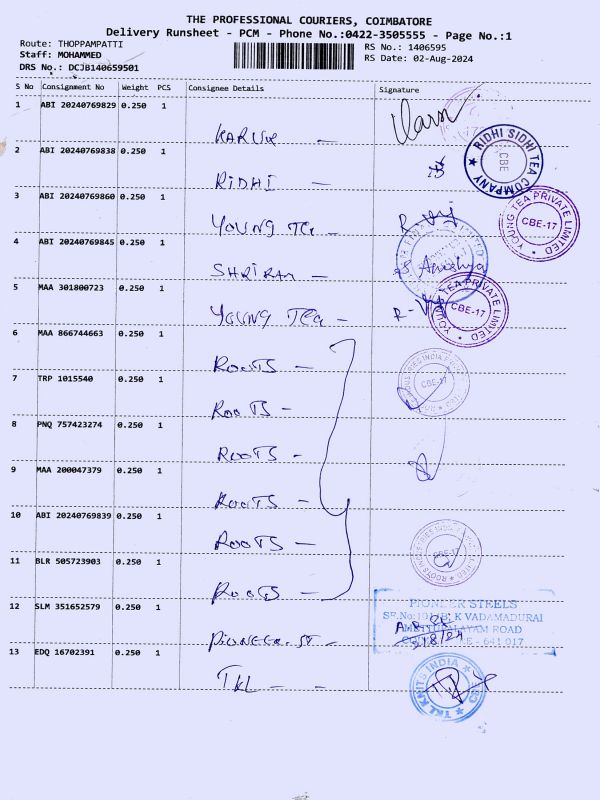 THE PROFESSIONAL COURIERS, COIMBATORE
Delivery Runsheet - PCM - Phone No.:0422-3505555 - Page No.:1
Route: THOPPAMPATTI
RS No.: 1406595
Staff: MOHAMMED
RS Date: 02-Aug-2024
DRS No.: DCJB140659501
S No Consignment No Weight PCS Consignee Details Signature
1 ABI 20240769829 0.250 1
2 ABI 20240769838 0.250 1
RIDHI -
RIDHI SIDHI TEA COMPANY
CBE
3 ABI 20240769860 0.250 1
YOUNG Tea -
YOUNG TEA PRIVATE LIMITED
CBE-17
4 ABI 20240769845 0.250 1
SHRIRAM -
5 MAA 301800723 0.250 1
YOUNG Tea -
YOUNG TEA PRIVATE LIMITED
CBE-17
6 MAA 866744663 0.250 1
ROOTS -
7 TRP 1015540 0.250 1
ROOTS -
ROOTS INDUSTRIES INDIA
CBE-17
8 PNQ 757423274 0.250 1
ROOTS -
9 MAA 200047379 0.250 1
ROOTS -
10 ABI 20240769839 0.250 1
ROOTS -
11 BLR 505723903 0.250 1
ROOTS -
ROOTS INDUSTRIES INDIA
CBE-17
12 SLM 351652579 0.250 1
PIONEER. ST -
PIONEER STEELS
VADAMADURAI
ROAD
641 017
2/8/24
13 EDQ 16702391 0.250 1
TKL - -
TKL KNITS INDIA